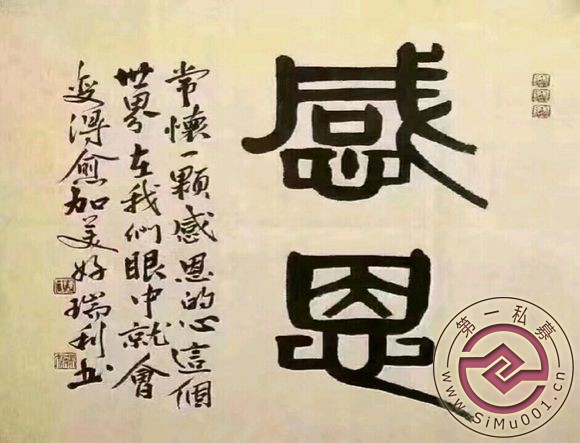 感恩
常懷一顆感恩的心這個
世界在我們眼中就會
变得愈加美好瑞利书
第一私募
www.SiMu001.cn